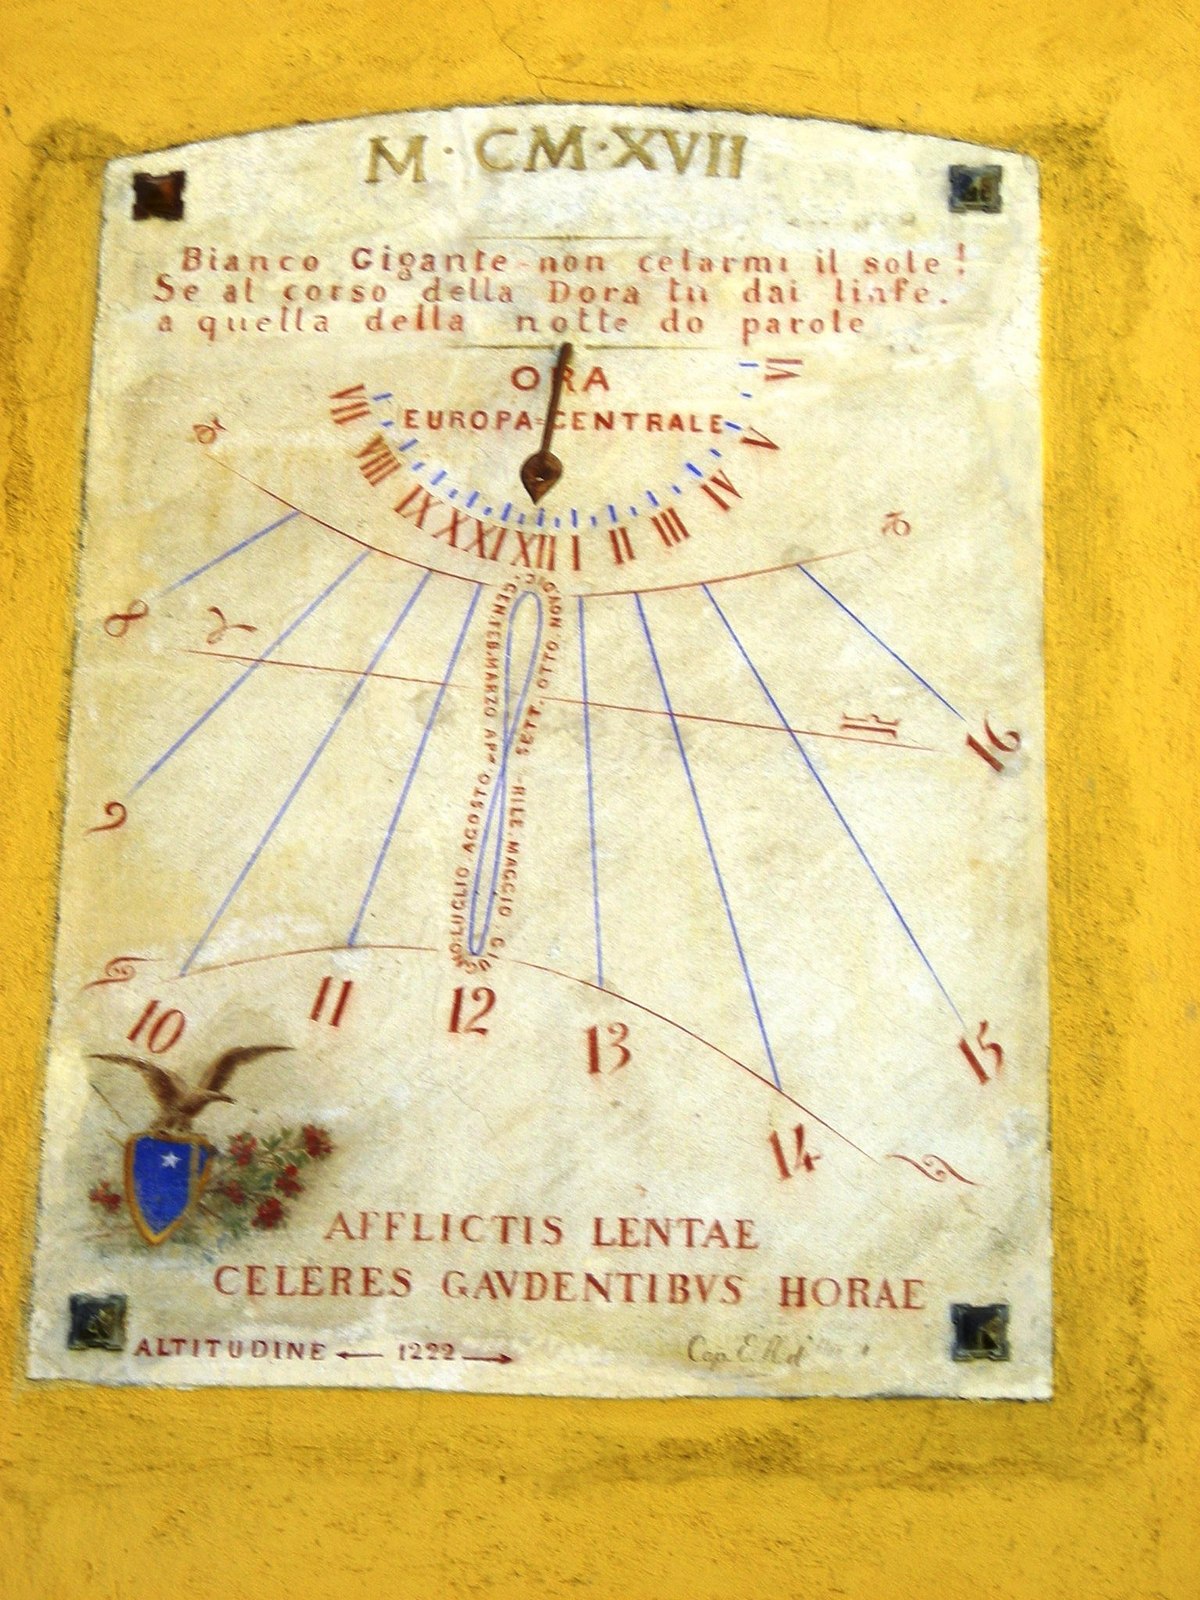 M·CM·XVII
Bianco Gigante - non celarmi il sole!
Se al corso della Dora tu dai linfe.
a quella della notte do parole
ORA
EUROPA=CENTRALE
VII VIII IX X XI XII I II III IV V VI
GEN. FEB. MARZO AP.
RILE. MAGGIO. GIUGNO. LUGLIO. AGOSTO.
SETT. OTTO. NOV. DIC.
8
9
10
11
12
13
14
15
16
AFFLICTIS LENTAE
CELERES GAVDENTIBVS HORAE
ALTITUDINE ← 1222 →
Cap. E.